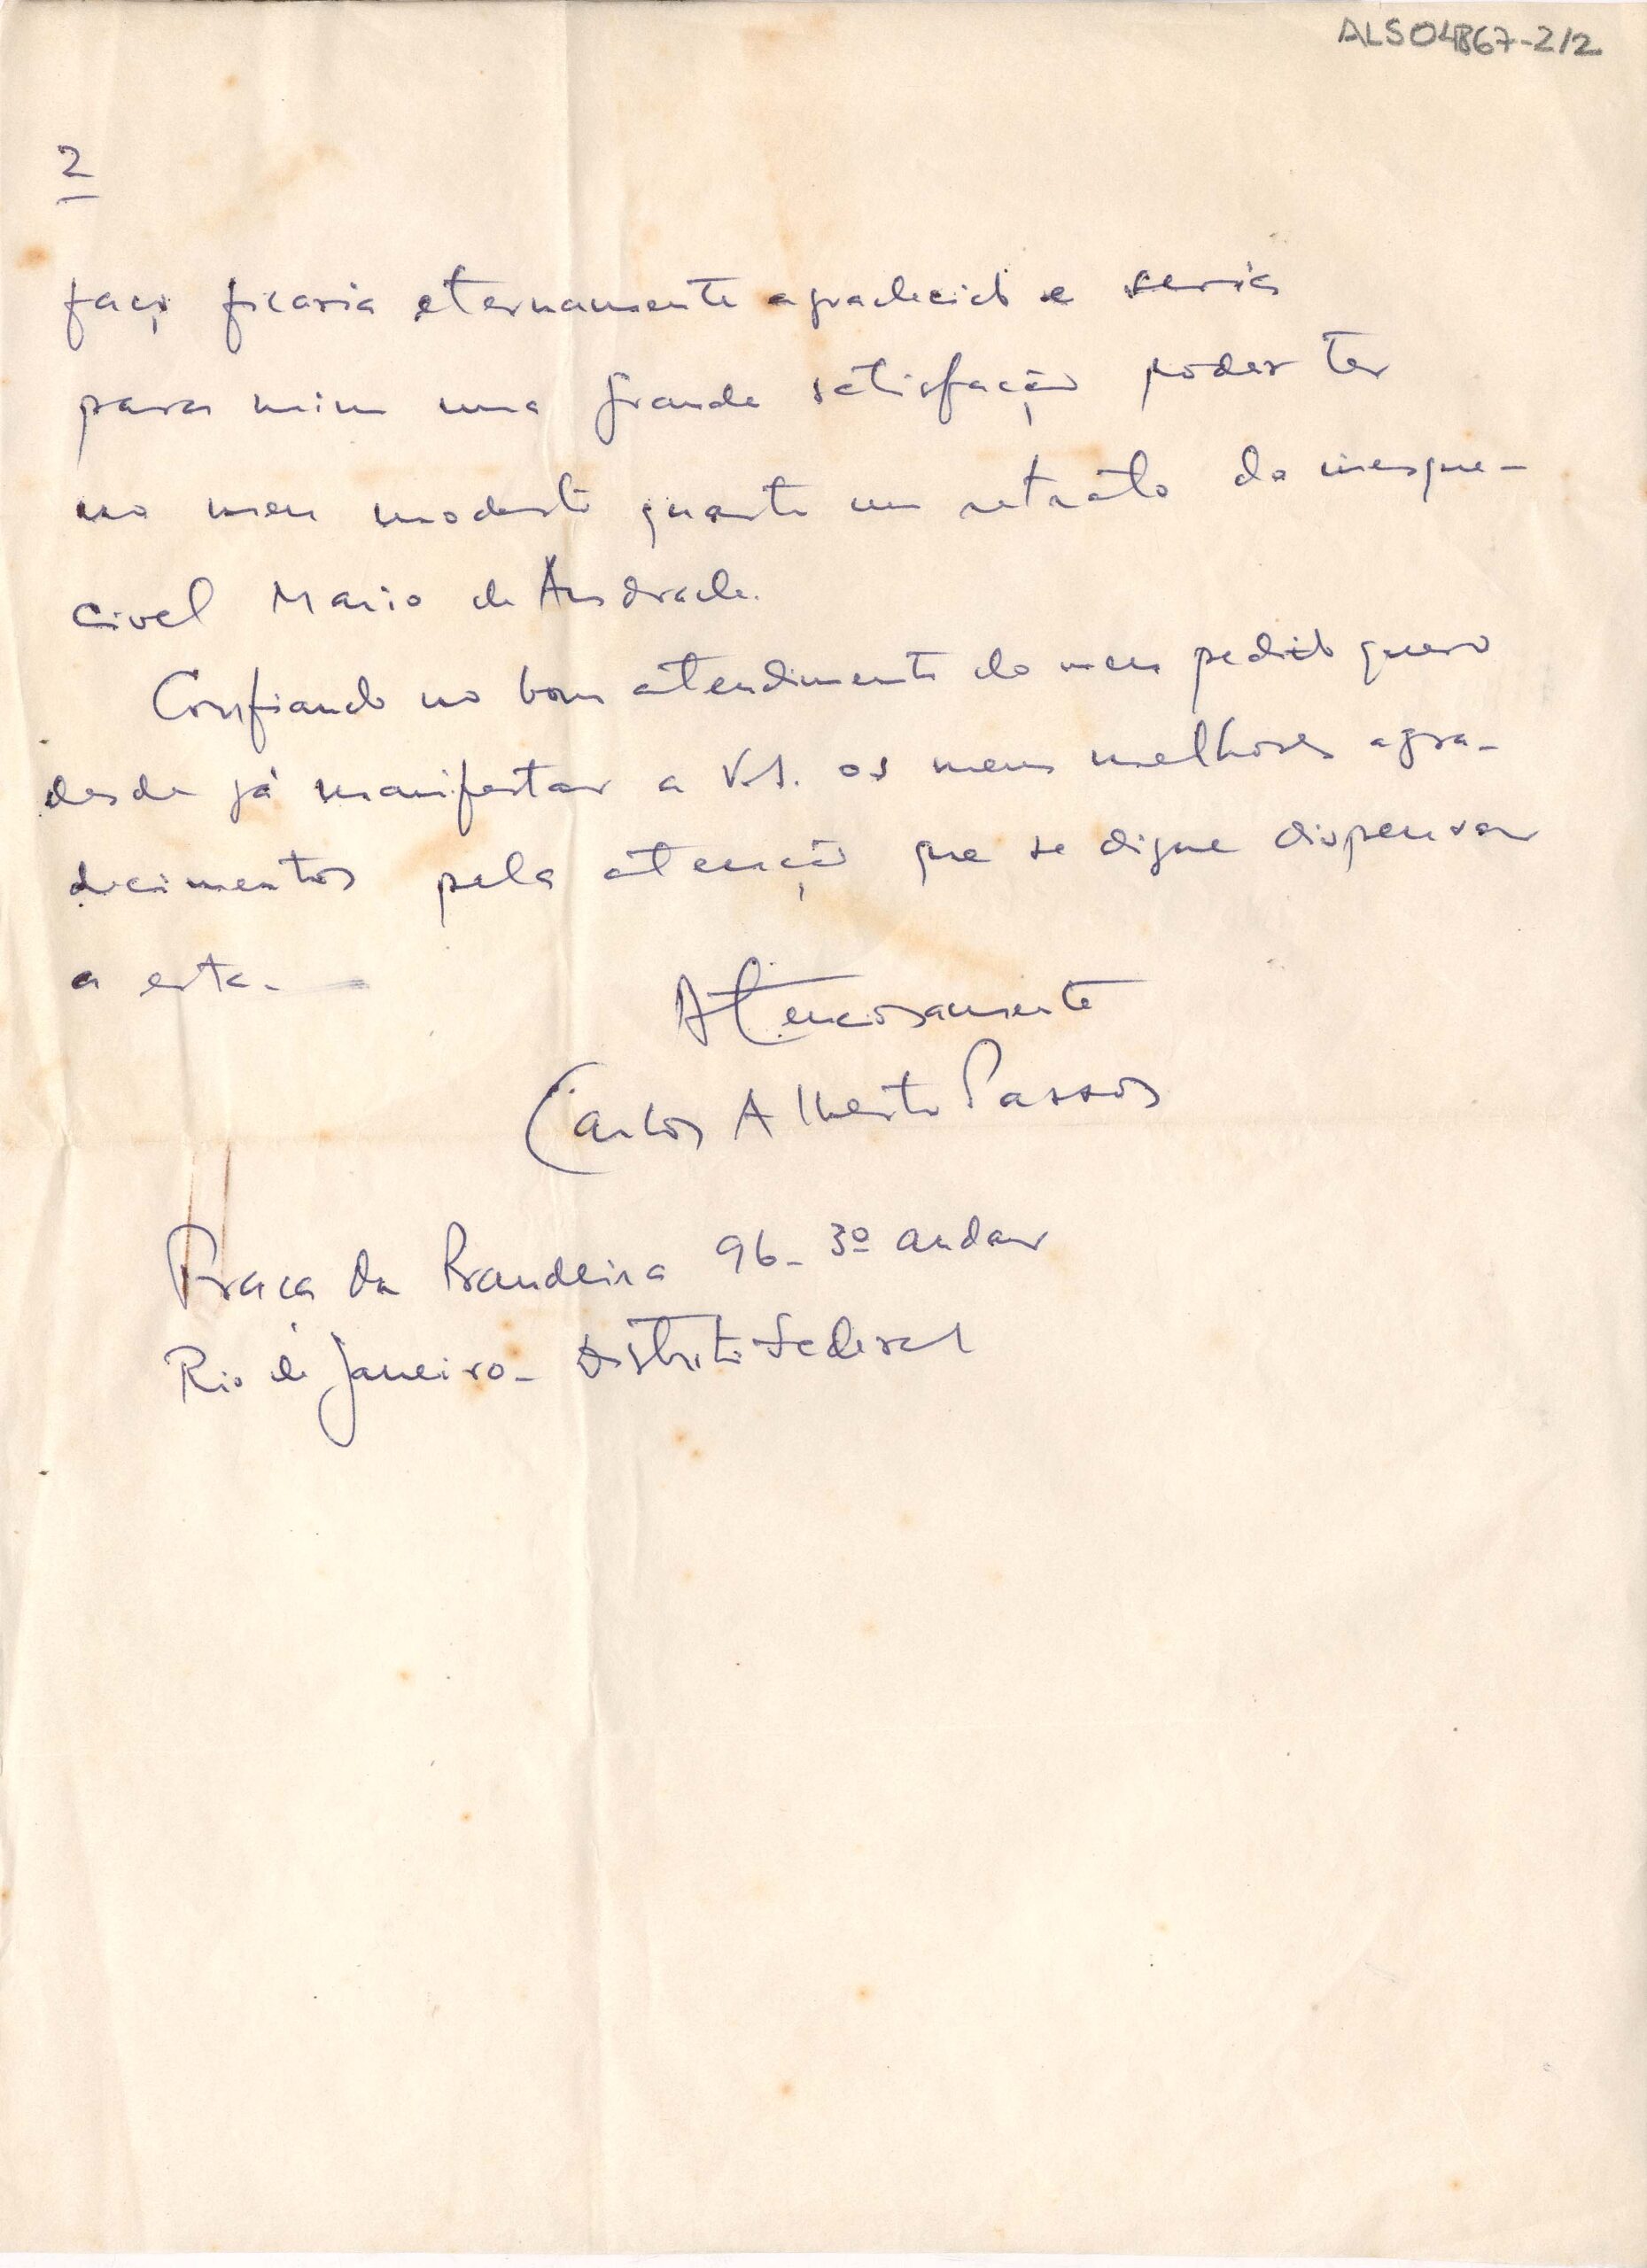 ALS04867-2/2
2
faço ficaria eternamente agradecido e seria
para mim uma grande satisfação poder ter
no meu modesto quarto um retrato do inesque-
civel Mario de Andrade.
Confiando no bom atendimento do meu pedido quero
desde já manifestar a V.S. os meus melhores agra-
decimentos pela atenção que se digne dispensar
a esta.
Atenciosamente
Carlos Alberto Passos
Praça da Bandeira 96 - 3º andar
Rio de Janeiro - Distrito Federal